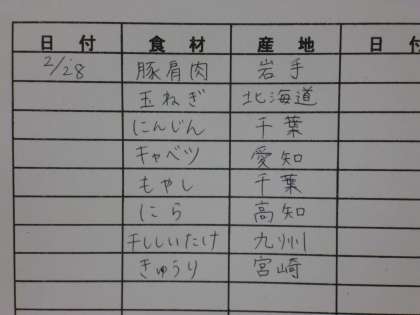 日付 食材 産地 日付
2/28 豚肩肉 岩手
玉ねぎ 北海道
にんじん 千葉
キャベツ 愛知
もやし 千葉
にら 高知
干ししいたけ 九州
きゅうり 宮崎